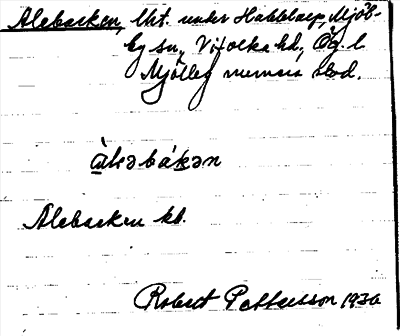 Alebacken, lht. under Habblarp, Mjöl-
by sn, Vifolka hd, Ög. l.
Mjölby stad.
àləbákən
Alebacken kb.
Robert Pettersson 1930